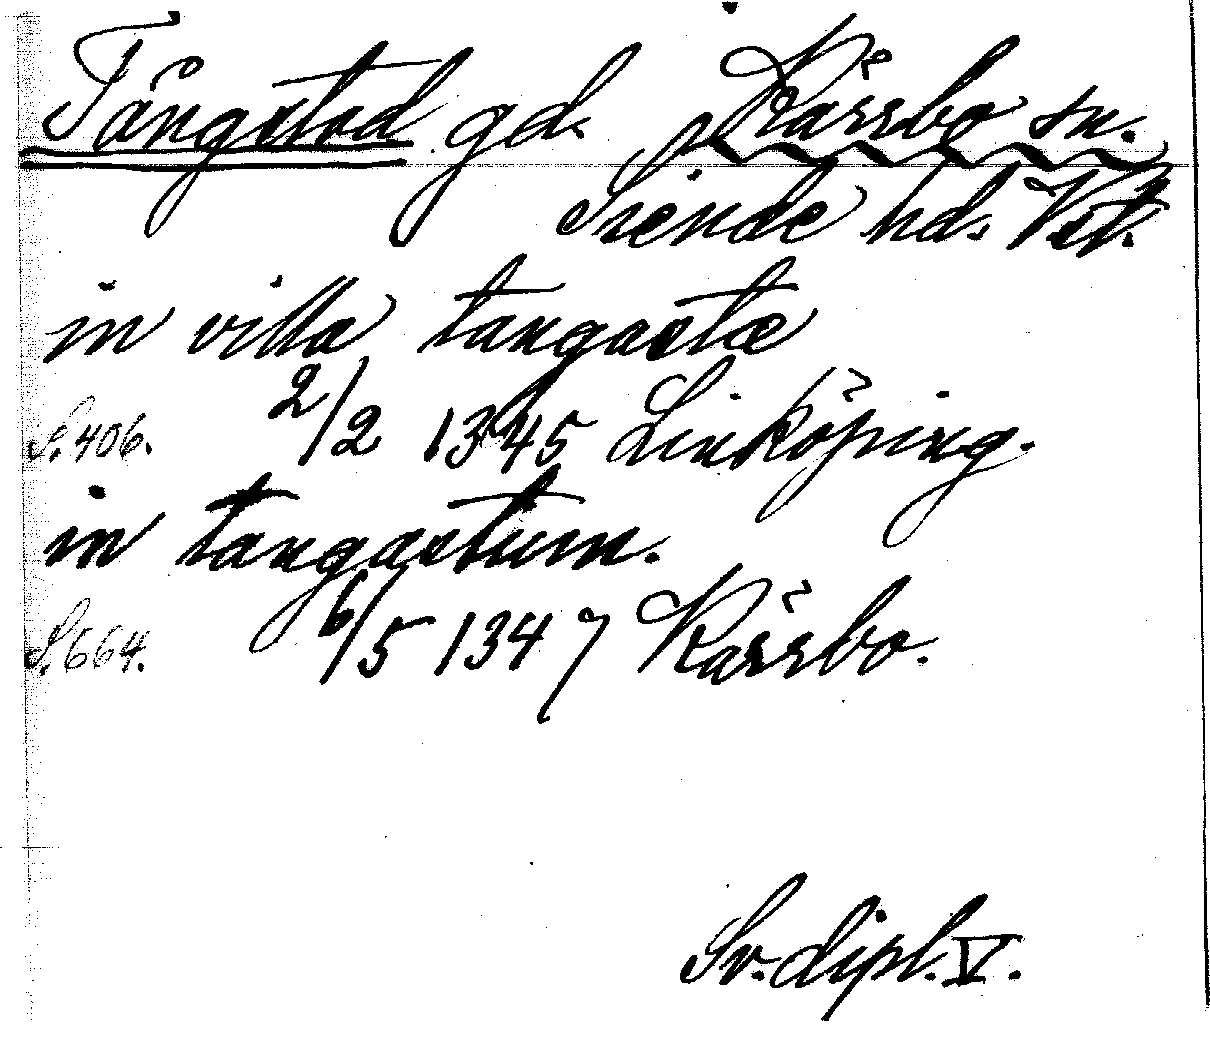 Tångstad gd. Kärrbo sn.
Siende hd. Vst.
in villa tangastæ
S. 406. 2/2 1345 Linköping.
in tangastum.
S. 664. 6/5 1347 Kärrbo.
Sv. dipl. V.